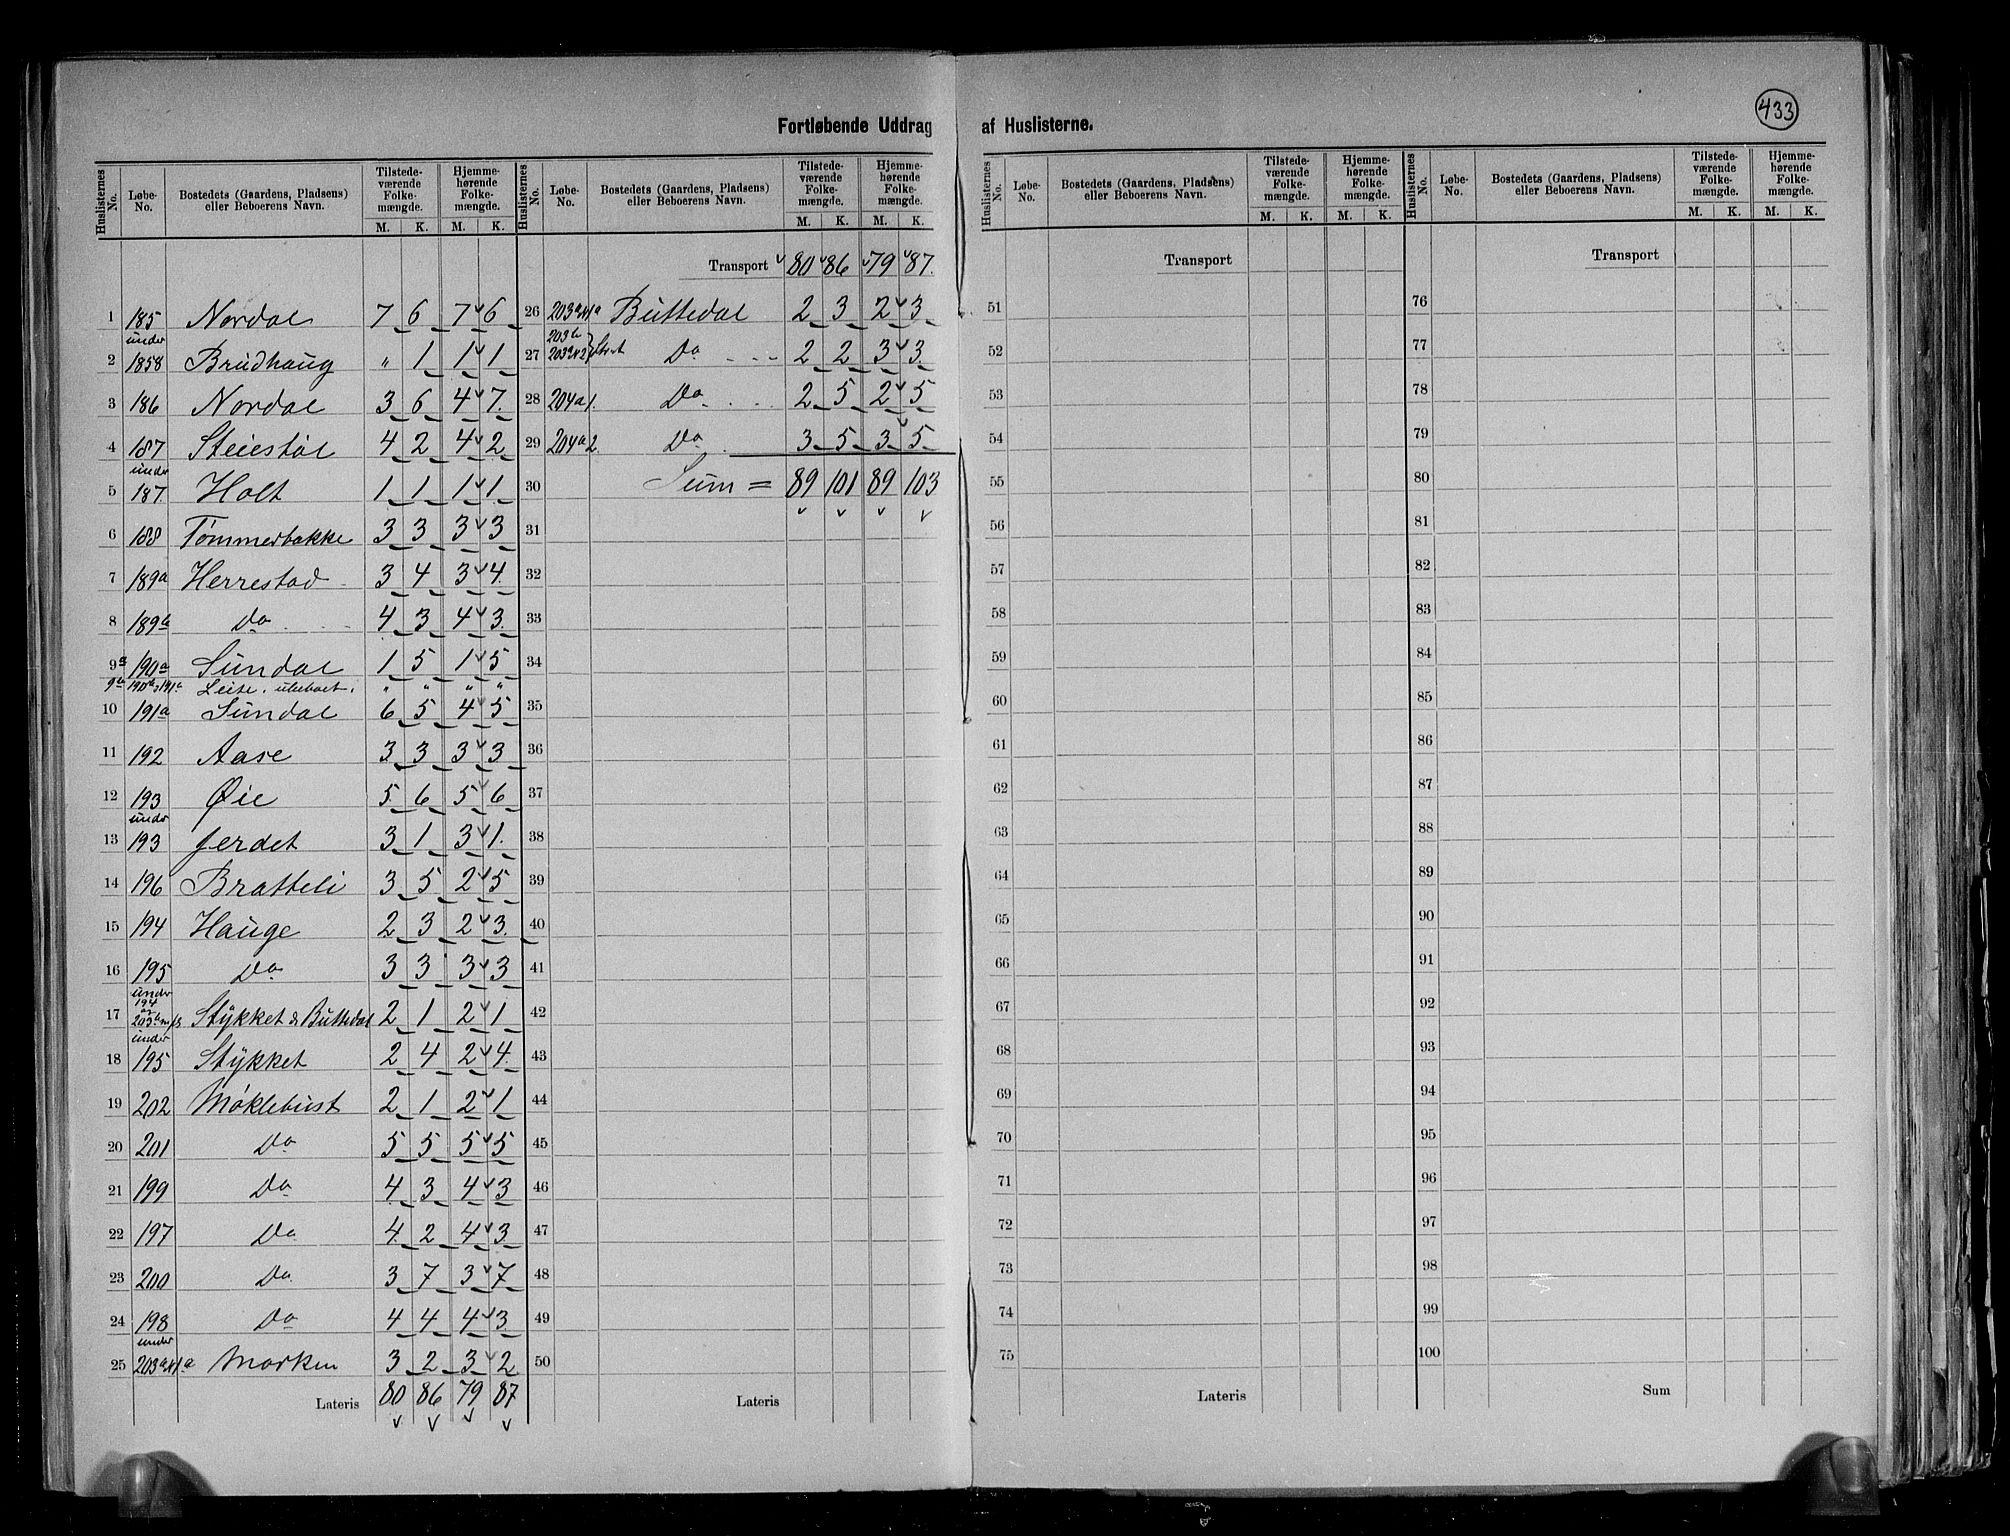 433
Fortløbende Uddrag af Huslisterne.
Huslisternes No. | Løbe-No. | Bostedets (Gaardens, Pladsens) eller Beboerens Navn. | Tilstedeværende Folkemængde. M. K. | Hjemmehørende Folkemængde. M. K.
1 185 Nordal 7 6 7 6
2 under 185 8 Brudhaug " 1 1 1
3 186 Nordal 3 6 4 7
4 187 Steiestøl 4 2 4 2
5 under 187 Holt 1 1 1 1
6 188 Tømmerbakke 3 3 3 3
7 189a Herrestad 3 4 3 4
8 189b Do 4 3 4 3
9a 190a Sundal 1 5 1 5
9b 190b, 191b Leite. ubeboet. " " " "
10 191a Sundal 6 5 4 5
11 192 Aase 3 3 3 3
12 193 Øie 5 6 5 6
13 under 193 Jerdet 3 1 3 1
14 196 Bratteli 3 5 2 5
15 194 Hauge 2 3 2 3
16 195 Do 3 3 3 3
17 under 194 203b Stykket & Buttedal 2 1 2 1
18 under 195 Stykket 2 4 2 4
19 202 Møklebust 2 1 2 1
20 201 Do 5 5 5 5
21 199 Do 4 3 4 3
22 197 Do 4 2 4 3
23 200 Do 3 7 3 7
24 198 Do 4 4 4 3
25 under 203a Marken 3 2 3 2
Lateris 80 86 79 87
Huslisternes No. | Løbe-No. | Bostedets (Gaardens, Pladsens) eller Beboerens Navn. | Tilstedeværende Folkemængde. M. K. | Hjemmehørende Folkemængde. M. K.
Transport 80 86 79 87
26 203a Buttedal 2 3 2 3
27 203b Do 2 2 3 3
28 204a 1 Do 2 5 2 5
29 204a 2 Do 3 5 3 5
30 Sum = 89 101 89 103
31
32
33
34
35
36
37
38
39
40
41
42
43
44
45
46
47
48
49
50
Lateris
Huslisternes No. | Løbe-No. | Bostedets (Gaardens, Pladsens) eller Beboerens Navn. | Tilstedeværende Folkemængde. M. K. | Hjemmehørende Folkemængde. M. K.
Transport
51
52
53
54
55
56
57
58
59
60
61
62
63
64
65
66
67
68
69
70
71
72
73
74
75
Lateris
Huslisternes No. | Løbe-No. | Bostedets (Gaardens, Pladsens) eller Beboerens Navn. | Tilstedeværende Folkemængde. M. K. | Hjemmehørende Folkemængde. M. K.
Transport
76
77
78
79
80
81
82
83
84
85
86
87
88
89
90
91
92
93
94
95
96
97
98
99
100
Sum